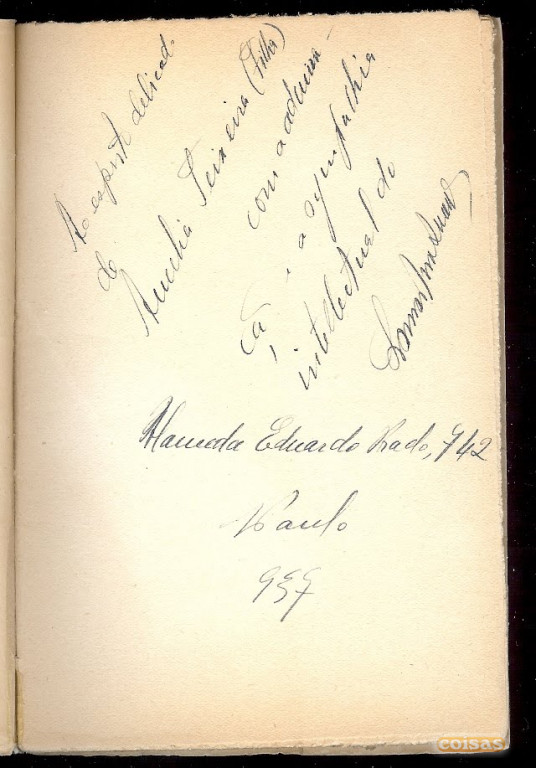 Ao espirito delicado
de
Amelia Teixeira (Filha)
com a admira-
ção e a sympathia
intellectual do
Alameda Eduardo Prado, 742
S. Paulo
937
coisas